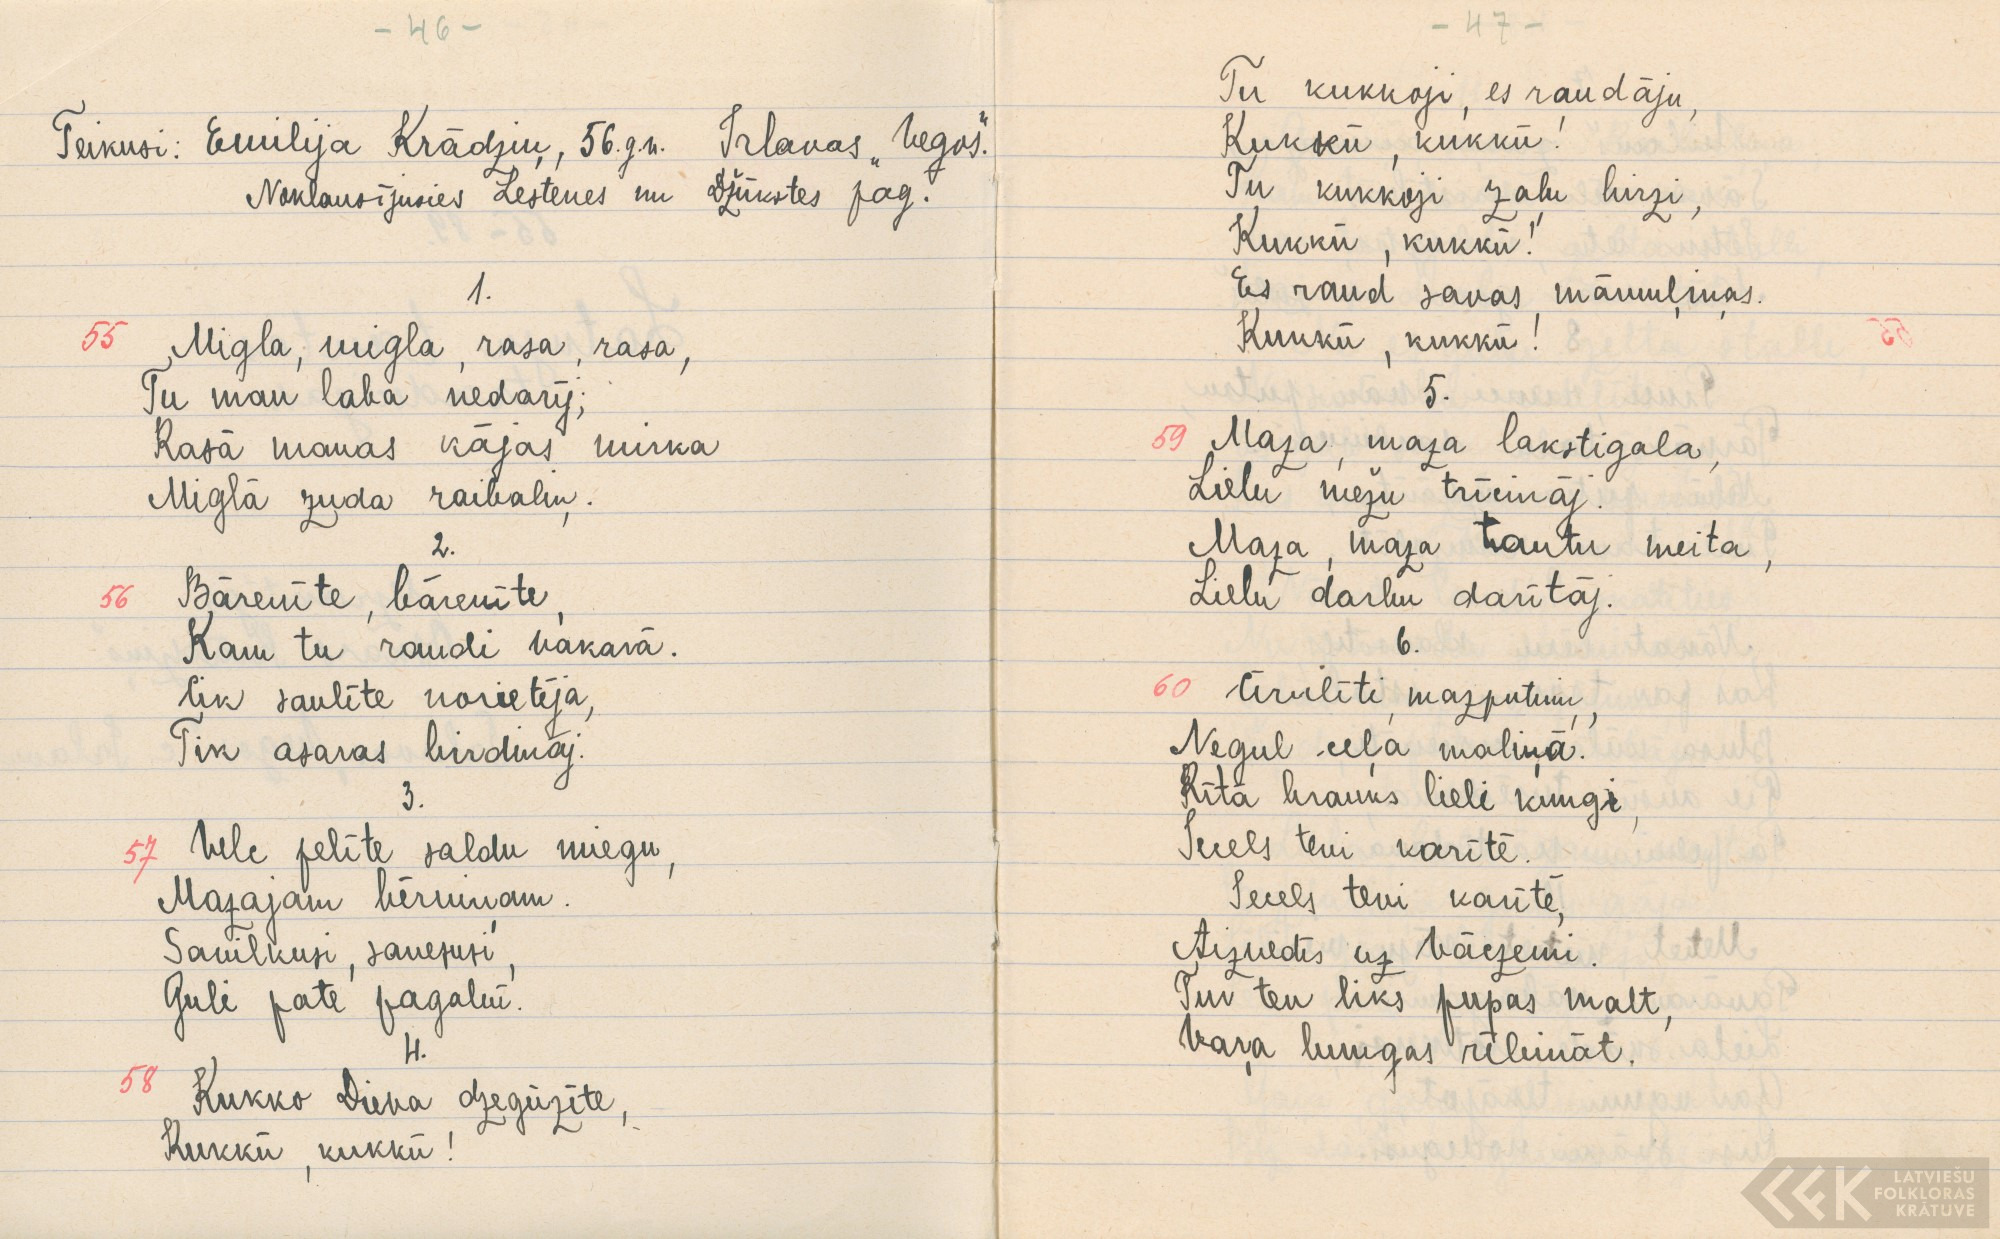 - 46 -
Teikusi: Emilija Krādziņ, 56.g.v. Irlavas „Vegos".
Noklausījusies Lestenes un Džūkstes pag.
1.
55 Migla, migla, rasa, rasa,
Tu man laba nedarīj;
Rasā manas kājas mirka
Miglā zuda raibaliņ.
2.
56 Bārenīte, bārenīte,
Kam tu raudi vakarā.
Lik saulīte norietēja,
Tik asaras birdināj.
3.
57 Velc pelīte saldu miegu,
Mazajam bērniņam.
Savilkusi, sanesusi,
Guli pate pagalvī.
4.
58 Kukko Dieva dzegūzīte,
Kukkū, kukkū!
- 47 -
Tu kukkoji, es raudāju,
Kukkū, kukkū!
Tu kukkoji zaļu birzi,
Kukkū, kukkū!
Es raud savas māmuļiņas.
Kukkū, kukkū!
5.
59 Maza, maza lakstigala,
Lielu mežu trīcināj.
Maza, maza tautu meita,
Lielu darbu darītāj.
6.
60 Cīrulīti, mazputniņ,
Negul ceļa maliņā.
Rītā brauks lieli kungi,
Iecels tevi karītē.
Iecels tevi karītē,
Aizvedīs uz Vāczemi.
Tur tev liks pupas malt,
Vaŗa bungas rībināt.
LATVIEŠU
FOLKLORAS
KRĀTUVE